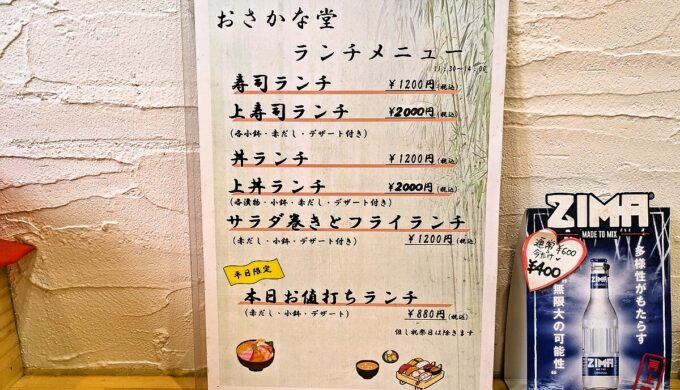 おさかな堂
ランチメニュー
11:30～14:00
寿司ランチ ￥1200円(税込)
上寿司ランチ ￥2000円(税込)
(各小鉢・赤だし・デザート付き)
丼ランチ ￥1200円(税込)
上丼ランチ ￥2000円(税込)
(各漬物・小鉢・赤だし・デザート付き)
サラダ巻きとフライランチ
(赤だし・小鉢・デザート付き) ￥1200円(税込)
平日限定
本日お値打ちランチ
(赤だし・小鉢・デザート) ￥880円(税込)
但し祝祭日は除きます
ZIMA
MADE TO MIX
通常¥600
今だけ
¥400
多様性がもたらす
"無限大の可能性"
ZIMA
ZIMA